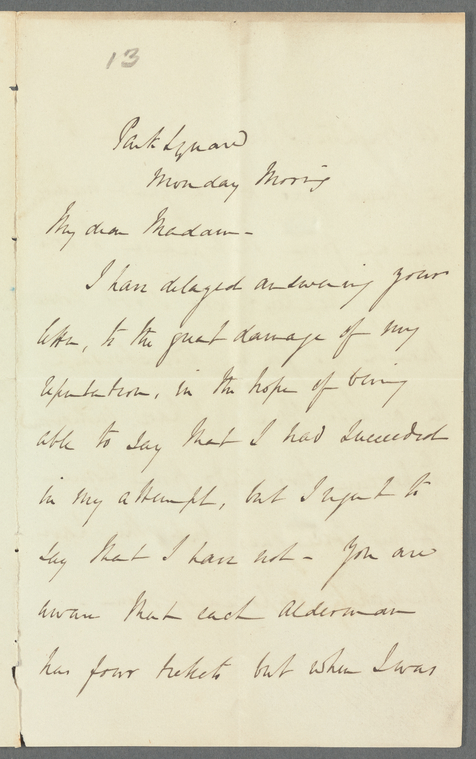 13
Park Square
Monday Morng
My dear Madam -
I have delayed answering your
letter, to the great damage of my
reputation, in the hope of being
able to say that I had succeeded
in my attempt, but I regret to
say that I have not - You are
aware that each Alderman
has four tickets but when I was